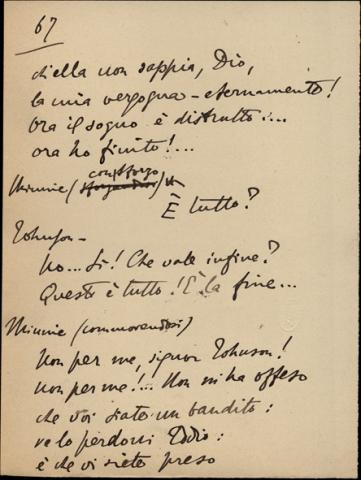 67
ch'ella non sappia, Dio,
la mia vergogna – eternamente!
Ora il sogno è distrutto....
ora ho finito!...
Minnie (con sforzo)
È tutto?
Johnson –
No... Sì! Che vale infine?
Questo è tutto! È la fine...
Minnie (commovendosi)
Non per me, signor Johnson!
Non per me!... Non mi ha offeso
che voi siate un bandito:
ve lo perdoni Iddio:
è che vi siete preso